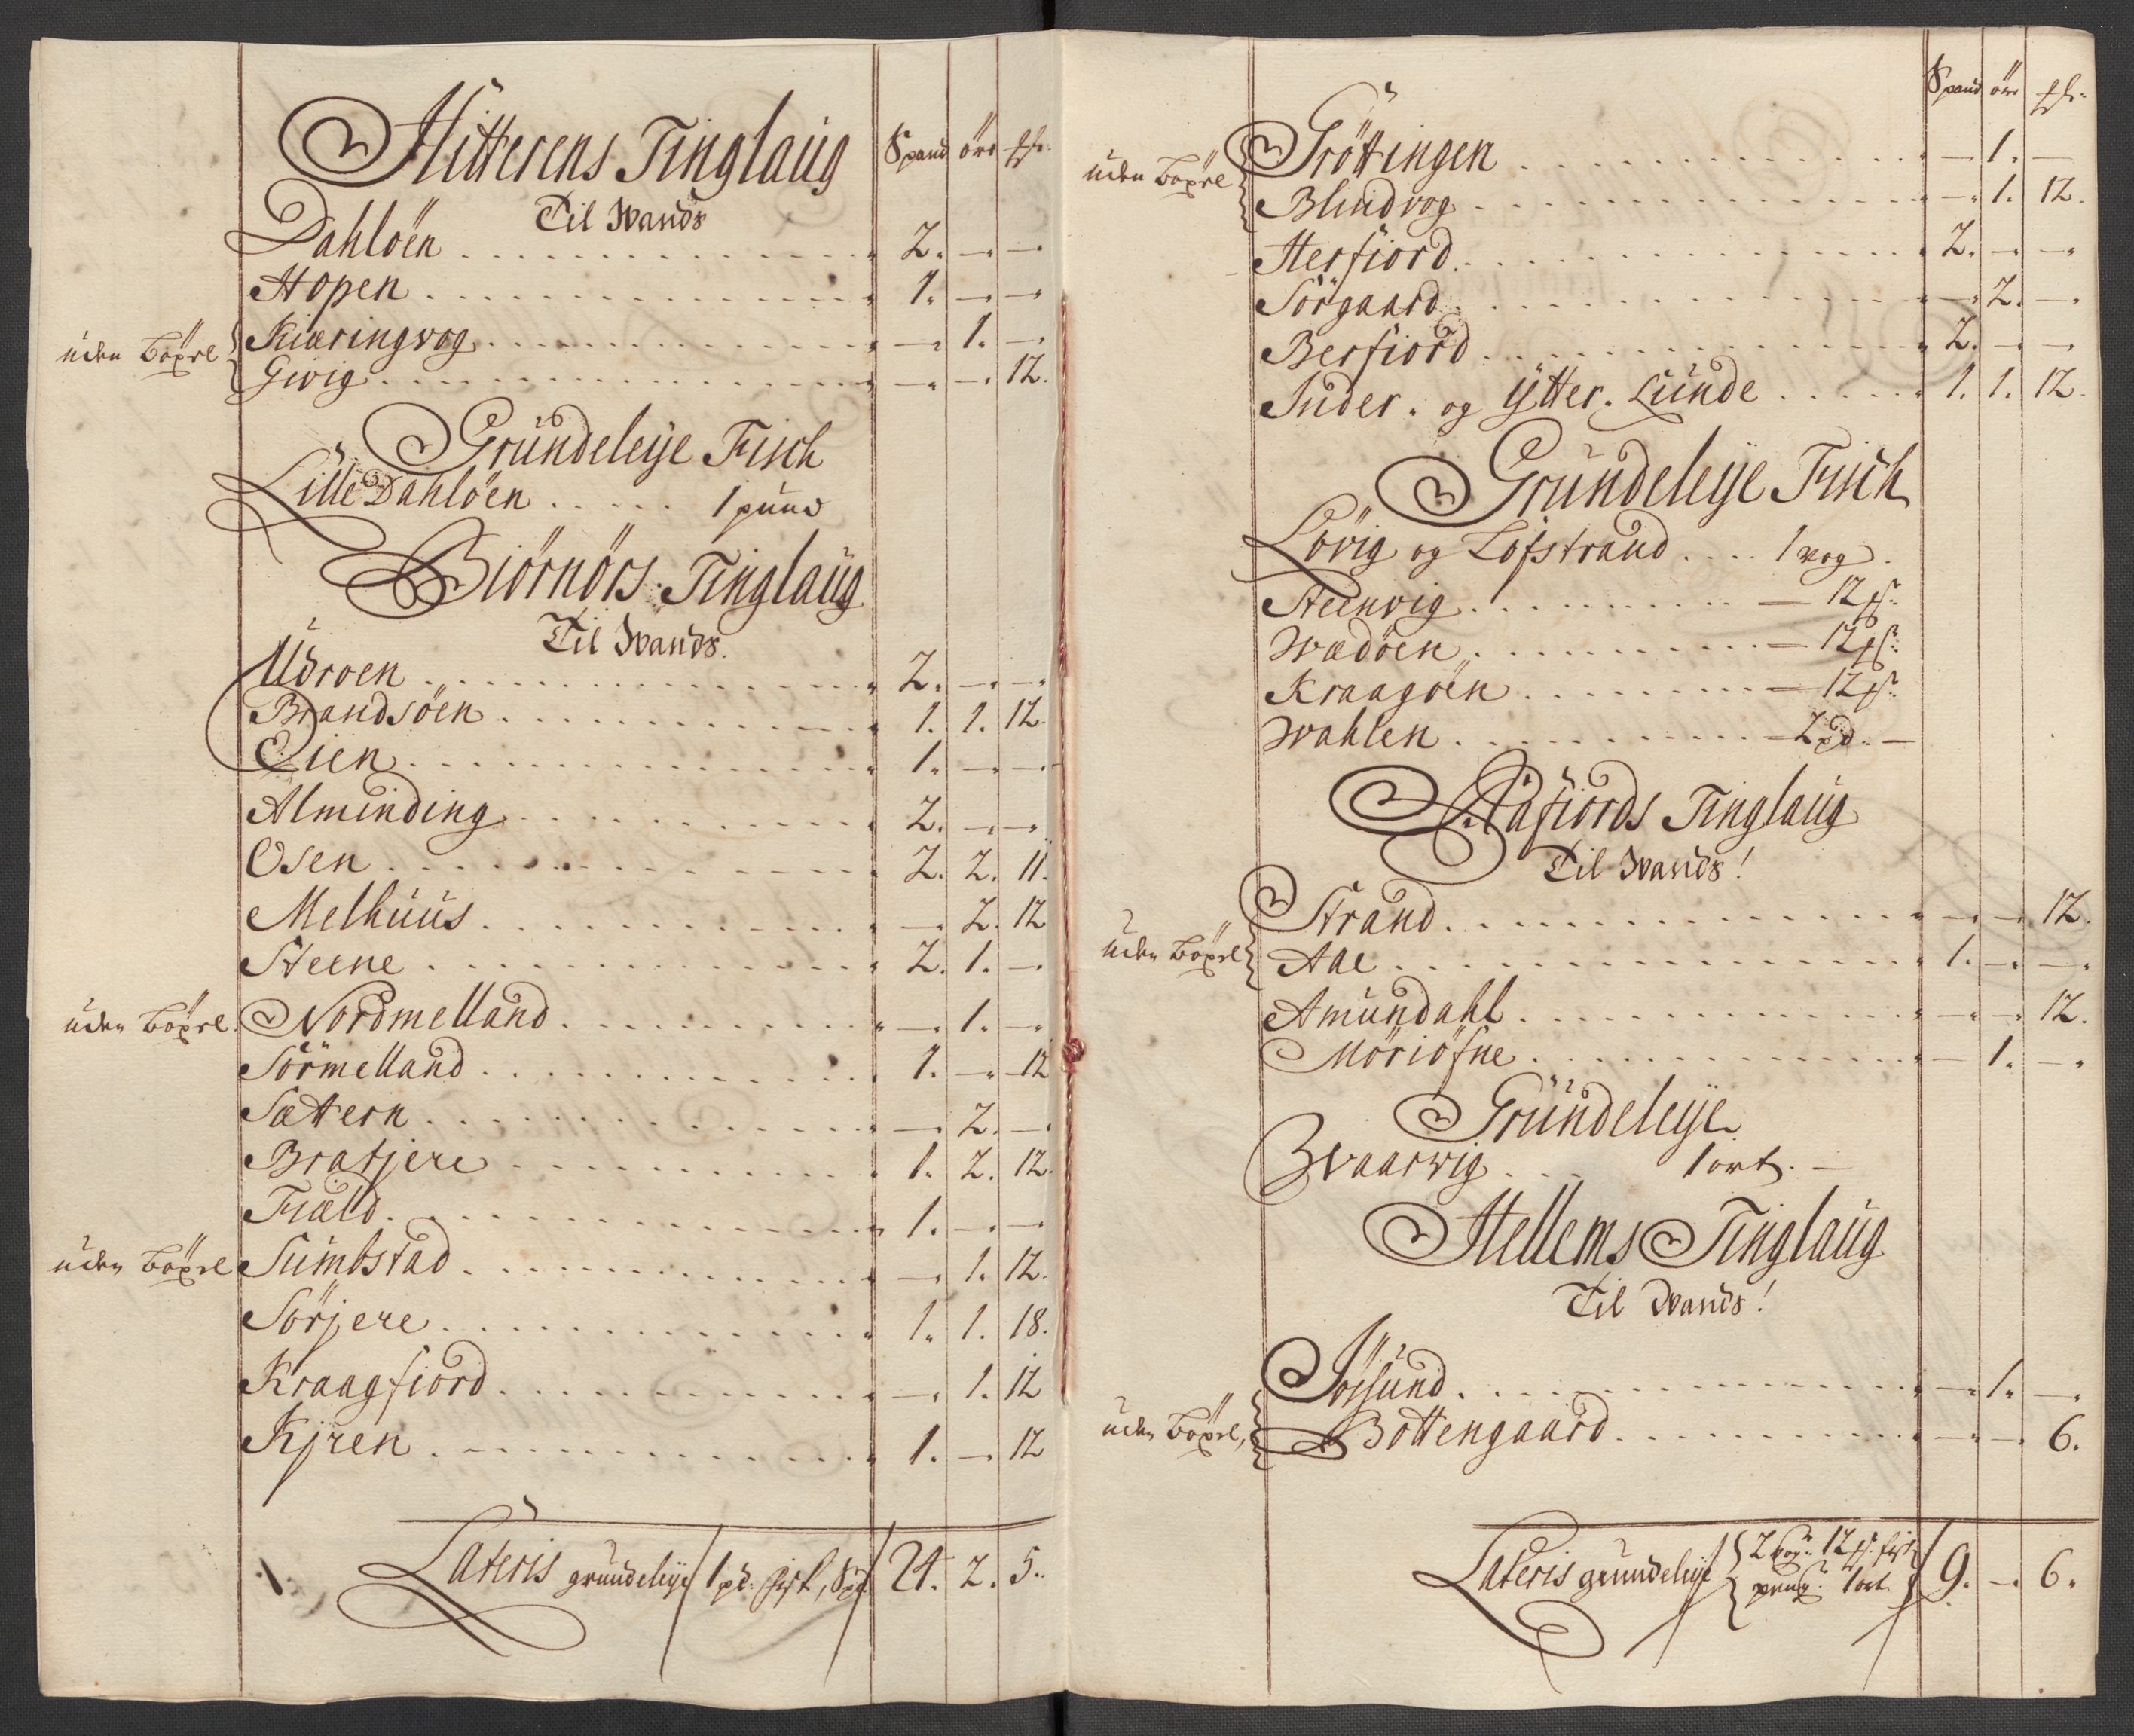 Hitterens Tinglaug Spand öre
Til Wands
Dahlöen . . . 2. — —
Hopen . . . 1. — —
uden Böxel Kiæringvog . . . — 1. —
Givig . . . — — 12.
Grundeleÿe Fisch
Lille Dahlöen . . . . . 1 pund
Biörnörs Tinglaug
Til Wands.
Udroen . . . 2. — —
Brandsöen . . . 1. 1. 12.
Eien . . . 1. — —
Alminding . . . 2. — —
Osen . . . 2. 2. 11.
Melhuus . . . — 2. 12
Steene . . . 2. 1. —
uden Böxel Nordmelland . . . — 1. —
Sörmelland . . . 1. — 12
Sætern . . . — 2. —
Bratjere . . . 1. 2. 12.
Fiæld . . . 1. — —
uden Böxel Sumbstad . . . — 1. 12.
Sörjere . . . 1. 1. 18.
Kraagfiord . . . — 1. 12
Kjren . . . 1. — 12
Lateris grundeleÿe 1 pd. fisk, 24. 2. 5.
Spand öre
uden Böxel Gröttingen . . . — 1. —
Blindvog . . . — 1. 12.
Herfiord . . . 2. — —
Sörgaard . . . — 2. —
Berfiord . . . 2. — —
Inder. og Ytter. Lunde . . . 1. 1. 12.
Grundeleÿe Fisch
Lövig og Lofstrand . . . . 1 vog.
Steenvig . . . — 12
Wædöen . . . — 12
Kraagöen . . . — 12
Wahlen . . . — 2 pd. —
Aafiords Tinglaug
Til Wands!
Strand . . . — — 12.
uden Böxel Aae . . . 1. — —
Amundahl . . . — — 12.
Möriöfne . . . — 1. —
Grundeleÿe
Qvaarvig . . . 1 ort. —
Hellems Tinglaug
Til Wands!
Jössund . . . — 1. —
uden Böxel, Bottengaard . . . — — 6.
Lateris grundeleÿe 2 vog 12 fisk 9. — 6.
1 ort